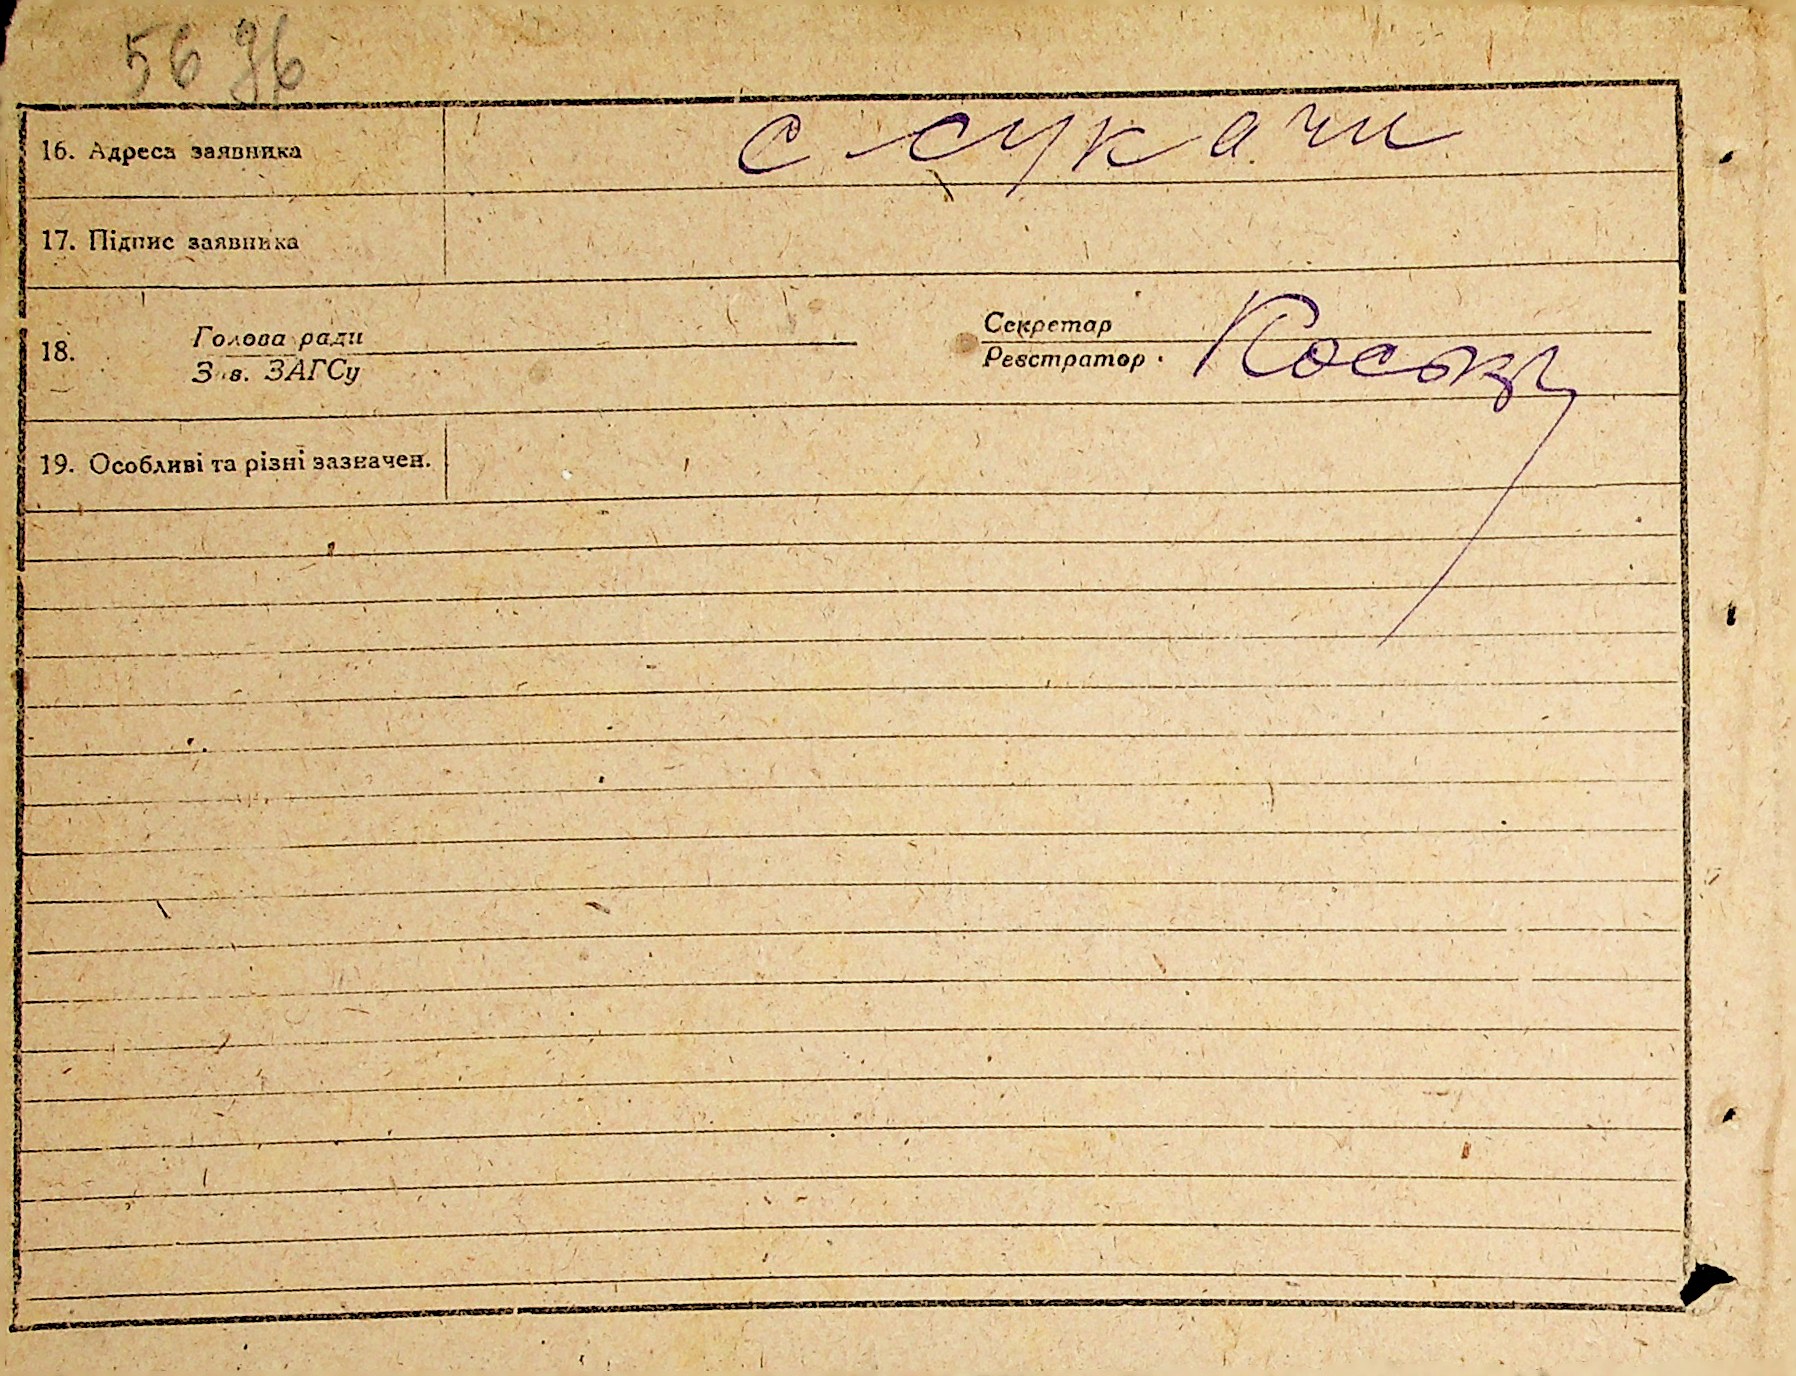 56 36
16. Адреса заявника с Сукачи
17. Підпис заявника
18. Голова ради Секретар
Зав. ЗАГСу Реєстратор
19. Особливі та різні зазначен.